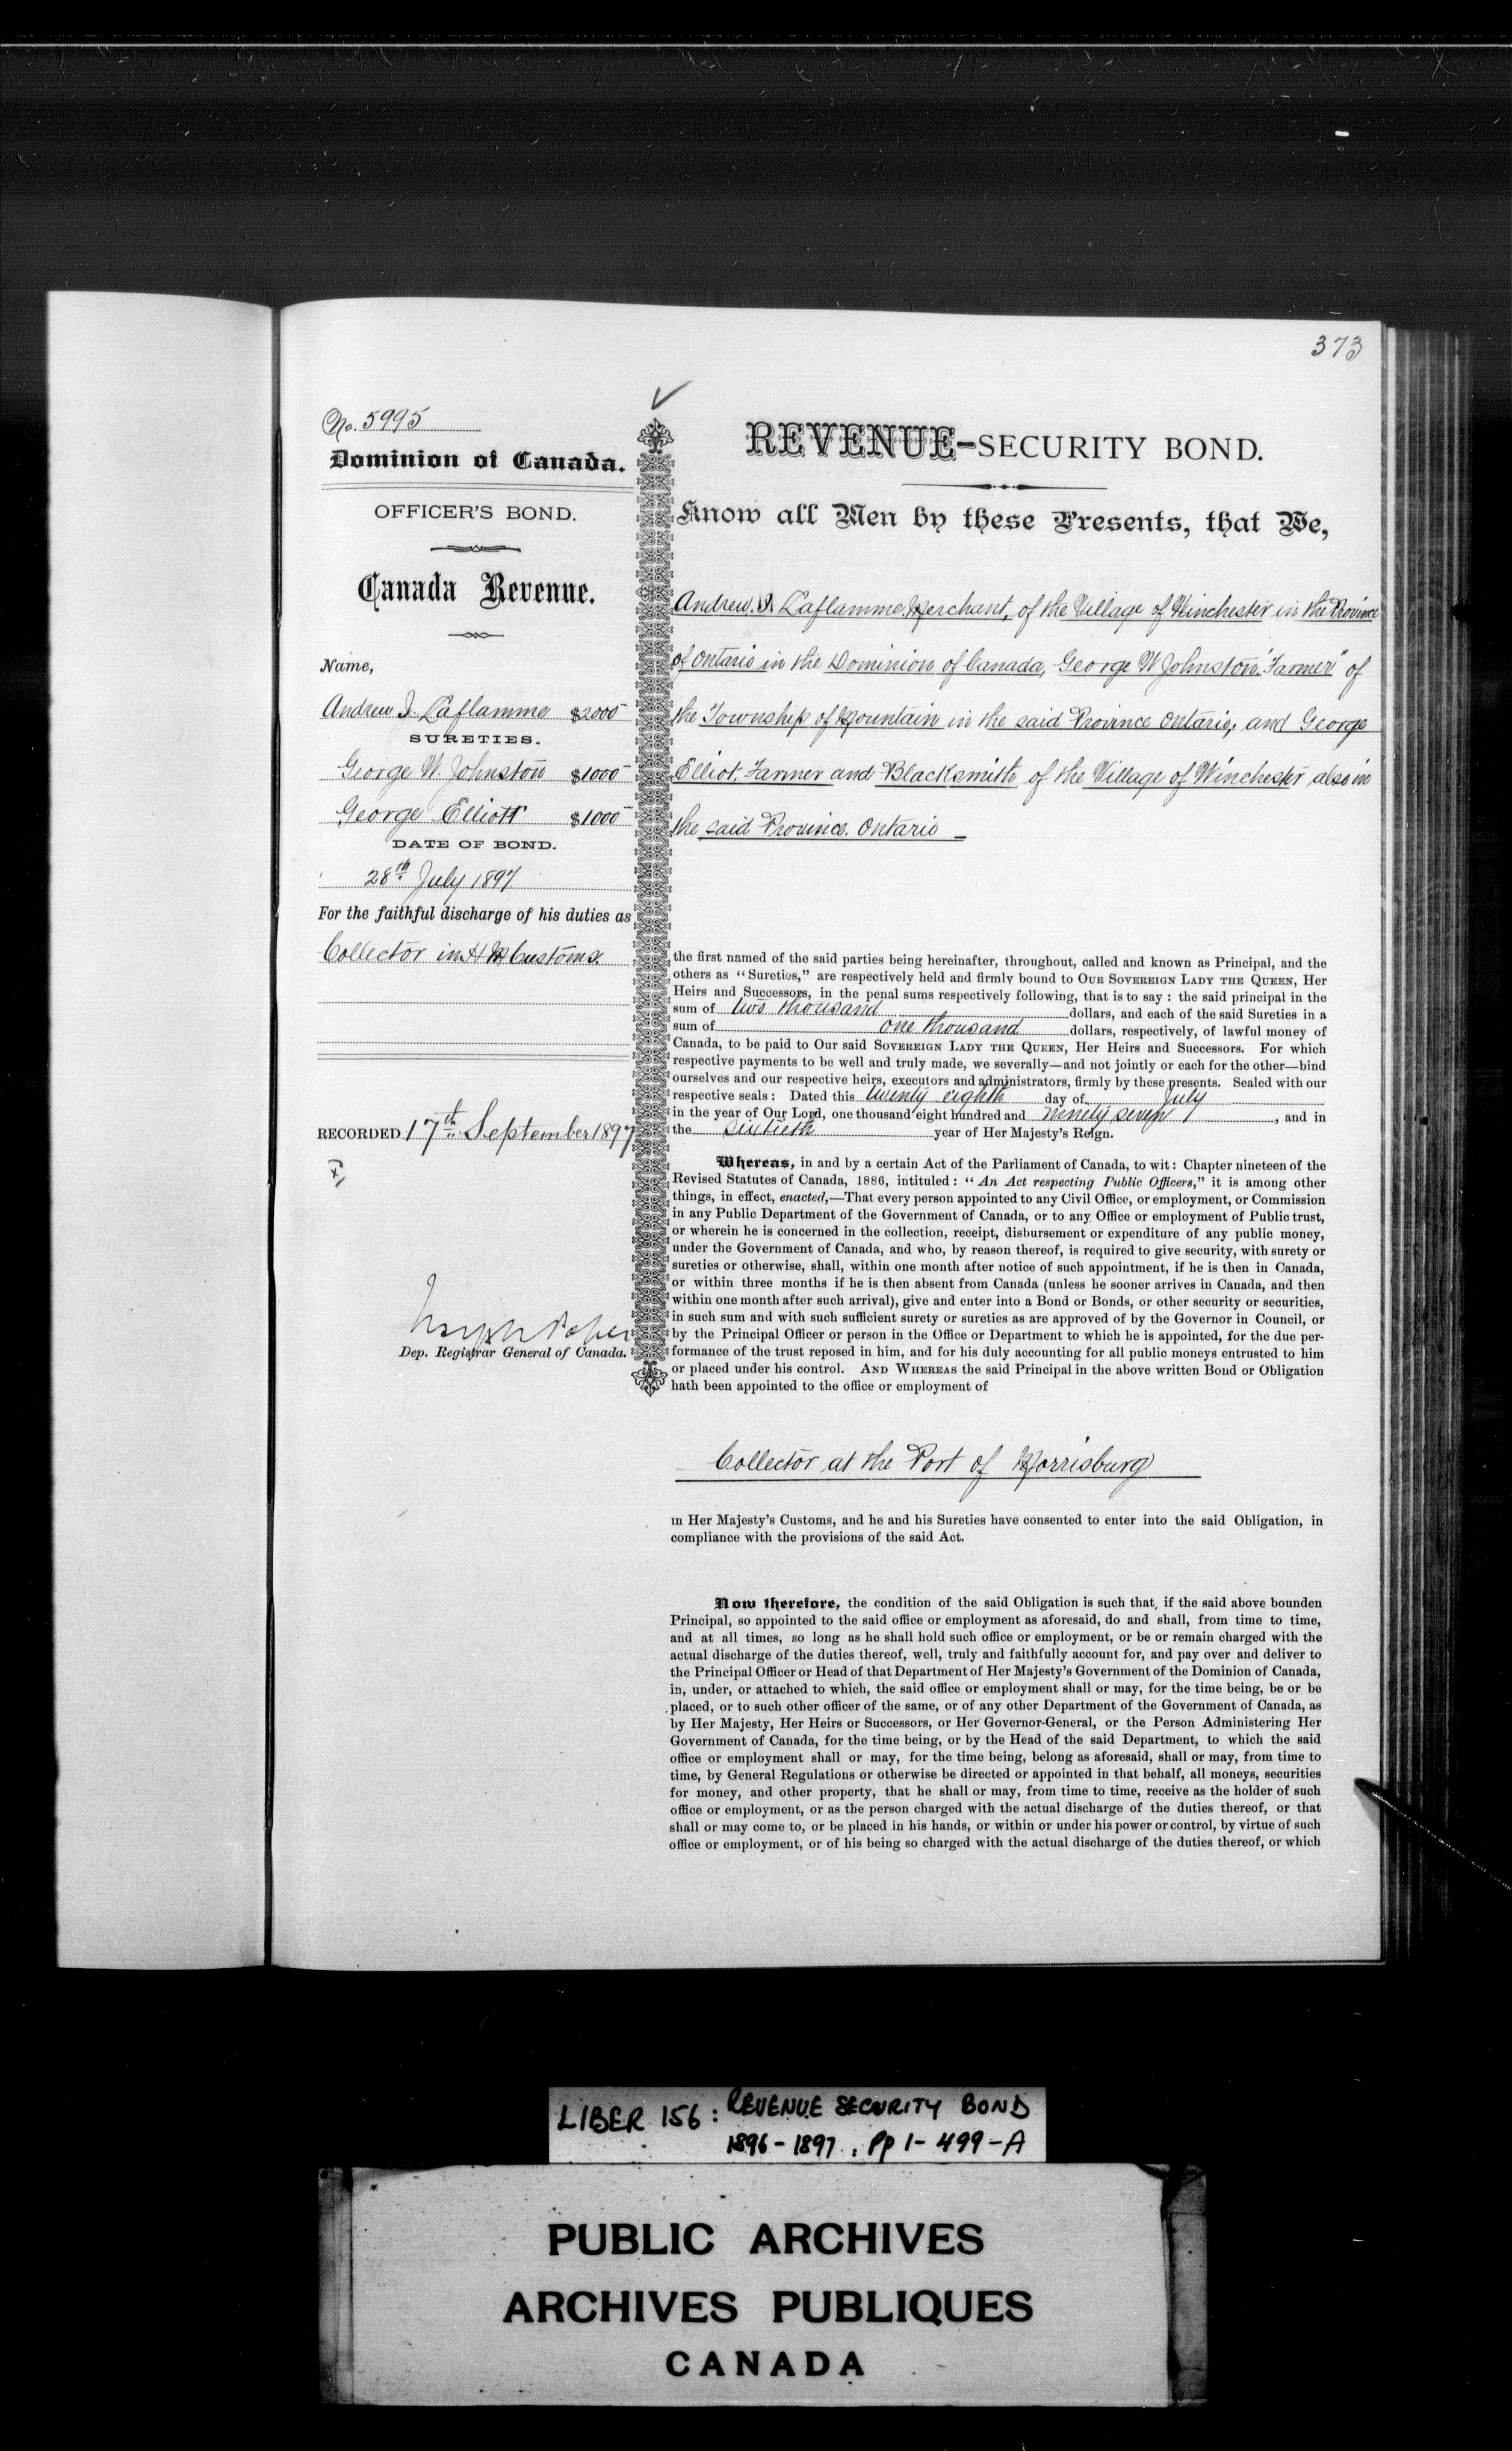 373
No. 5995
Dominion of Canada.
OFFICER'S BOND.
Canada Revenue.
Name,
Andrew J. Laflamme $2000
SURETIES.
George W. Johnston $1000
George Elliott $1000
DATE OF BOND.
28th July 1897
For the faithful discharge of his duties as
Collector in H M Customs.
RECORDED 17th September 1897
Joseph Pope
Dep. Registrar General of Canada.
REVENUE-SECURITY BOND.
Know all Men by these Presents, that We,
Andrew. J. Laflamme. Merchant, of the Village of Winchester in the Province
of Ontario in the Dominion of Canada, George W Johnston. "Farmer" of
the Township of Mountain in the said Province Ontario, and George
Elliot, Farmer and Blacksmith of the Village of Winchester also in
the said Province. Ontario
the first named of the said parties being hereinafter, throughout, called and known as Principal, and the
others as "Sureties," are respectively held and firmly bound to OUR SOVEREIGN LADY THE QUEEN, Her
Heirs and Successors, in the penal sums respectively following, that is to say : the said principal in the
sum of two thousand dollars, and each of the said Sureties in a
sum of one thousand dollars, respectively, of lawful money of
Canada, to be paid to Our said SOVEREIGN LADY THE QUEEN, Her Heirs and Successors. For which
respective payments to be well and truly made, we severally—and not jointly or each for the other—bind
ourselves and our respective heirs, executors and administrators, firmly by these presents. Sealed with our
respective seals : Dated this twenty eighth day of July
in the year of Our Lord, one thousand eight hundred and ninety seven, and in
the sixtieth year of Her Majesty's Reign.
Whereas, in and by a certain Act of the Parliament of Canada, to wit: Chapter nineteen of the
Revised Statutes of Canada, 1886, intituled : "An Act respecting Public Officers," it is among other
things, in effect, enacted,—That every person appointed to any Civil Office, or employment, or Commission
in any Public Department of the Government of Canada, or to any Office or employment of Public trust,
or wherein he is concerned in the collection, receipt, disbursement or expenditure of any public money,
under the Government of Canada, and who, by reason thereof, is required to give security, with surety or
sureties or otherwise, shall, within one month after notice of such appointment, if he is then in Canada,
or within three months if he is then absent from Canada (unless he sooner arrives in Canada, and then
within one month after such arrival), give and enter into a Bond or Bonds, or other security or securities,
in such sum and with such sufficient surety or sureties as are approved of by the Governor in Council, or
by the Principal Officer or person in the Office or Department to which he is appointed, for the due per-
formance of the trust reposed in him, and for his duly accounting for all public moneys entrusted to him
or placed under his control. AND WHEREAS the said Principal in the above written Bond or Obligation
hath been appointed to the office or employment of
Collector at the Port of Morrisburg
in Her Majesty's Customs, and he and his Sureties have consented to enter into the said Obligation, in
compliance with the provisions of the said Act.
Now therefore, the condition of the said Obligation is such that, if the said above bounden
Principal, so appointed to the said office or employment as aforesaid, do and shall, from time to time,
and at all times, so long as he shall hold such office or employment, or be or remain charged with the
actual discharge of the duties thereof, well, truly and faithfully account for, and pay over and deliver to
the Principal Officer or Head of that Department of Her Majesty's Government of the Dominion of Canada,
in, under, or attached to which, the said office or employment shall or may, for the time being, be or be
placed, or to such other officer of the same, or of any other Department of the Government of Canada, as
by Her Majesty, Her Heirs or Successors, or Her Governor-General, or the Person Administering Her
Government of Canada, for the time being, or by the Head of the said Department, to which the said
office or employment shall or may, for the time being, belong as aforesaid, shall or may, from time to
time, by General Regulations or otherwise be directed or appointed in that behalf, all moneys, securities
for money, and other property, that he shall or may, from time to time, receive as the holder of such
office or employment, or as the person charged with the actual discharge of the duties thereof, or that
shall or may come to, or be placed in his hands, or within or under his power or control, by virtue of such
office or employment, or of his being so charged with the actual discharge of the duties thereof, or which
LIBER 156: REVENUE SECURITY BOND
1896-1897, Pp 1-499-A
PUBLIC ARCHIVES
ARCHIVES PUBLIQUES
CANADA